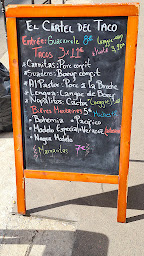 El Cartel Del Taco
Entrée: Guacamole 8€
Tacos 3 x 11€
*Carnitas: Porc confit
*Suadero: Boeuf confit
*Al Pastor: Porc à la Broche
*Lengua: Langue de Boeuf
*Nopalitos: Cactus
Bières Mexicaines 5€
*Bohemia *Pacifico
*Modelo Especial *Veracruz
*Negra Modelo
Margaritas 7€